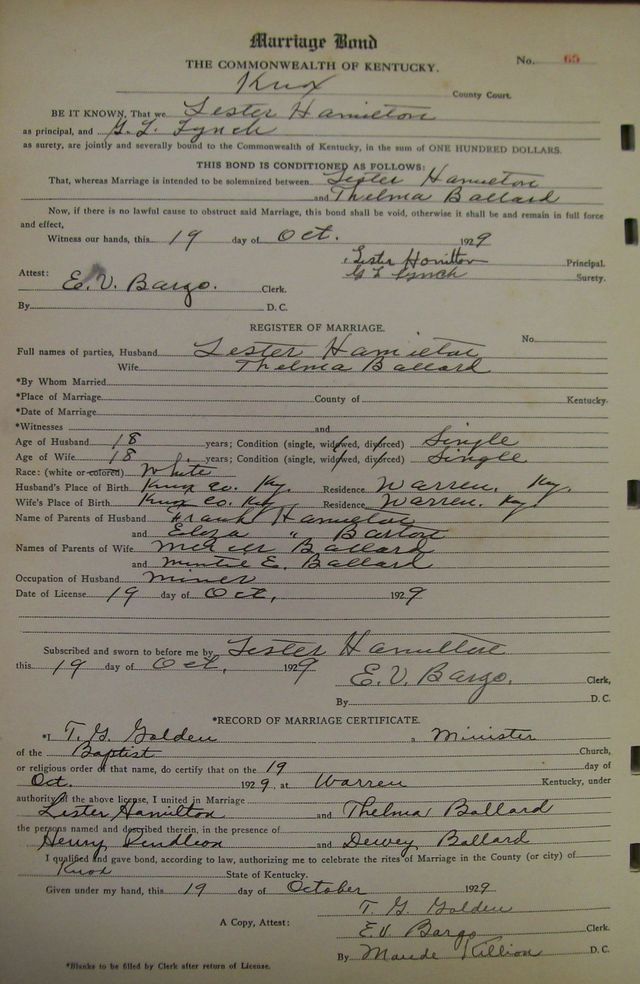 Marriage Bond
THE COMMONWEALTH OF KENTUCKY.
No. 65
Knox County Court.
BE IT KNOWN, That we Lester Hamilton
as principal, and G. L. Lynch
as surety, are jointly and severally bound to the Commonwealth of Kentucky, in the sum of ONE HUNDRED DOLLARS.
THIS BOND IS CONDITIONED AS FOLLOWS:
That, whereas Marriage is intended to be solemnized between Lester Hamilton
and Thelma Ballard
Now, if there is no lawful cause to obstruct said Marriage, this bond shall be void, otherwise it shall be and remain in full force
and effect,
Witness our hands, this 19 day of Oct. 1929
Lester Hamilton Principal.
G L Lynch Surety.
Attest:
E. V. Bargo. Clerk.
By D. C.
REGISTER OF MARRIAGE.
No.
Full names of parties, Husband Lester Hamilton
Wife Thelma Ballard
*By Whom Married
*Place of Marriage County of Kentucky.
*Date of Marriage
*Witnesses and
Age of Husband 18 years; Condition (single, widowed, divorced) Single
Age of Wife 18 years; Condition (single, widowed, divorced) Single
Race: (white or colored) White
Husband's Place of Birth Knox Co. Ky. Residence Warren, Ky.
Wife's Place of Birth Knox Co. Ky Residence Warren, Ky.
Name of Parents of Husband Frank Hamilton
and Eliza " Barton
Names of Parents of Wife Ballard
and E. Ballard
Occupation of Husband Miner
Date of License 19 day of Oct, 1929
Subscribed and sworn to before me by Lester Hamilton
this 19 day of Oct, 1929
E. V. Bargo. Clerk,
By D. C.
*RECORD OF MARRIAGE CERTIFICATE.
*I T. G. Golden a Minister
of the Baptist Church,
or religious order of that name, do certify that on the 19 day of
Oct. 1929, at Warren Kentucky, under
authority of the above license, I united in Marriage
Lester Hamilton and Thelma Ballard
the persons named and described therein, in the presence of
Henry and Dewey Ballard
I qualified and gave bond, according to law, authorizing me to celebrate the rites of Marriage in the County (or city) of
Knox State of Kentucky.
Given under my hand, this 19 day of October 1929
T. G. Golden
A Copy, Attest: E. V. Bargo Clerk.
By Maude Killion D. C.
*Blanks to be filled by Clerk after return of License.